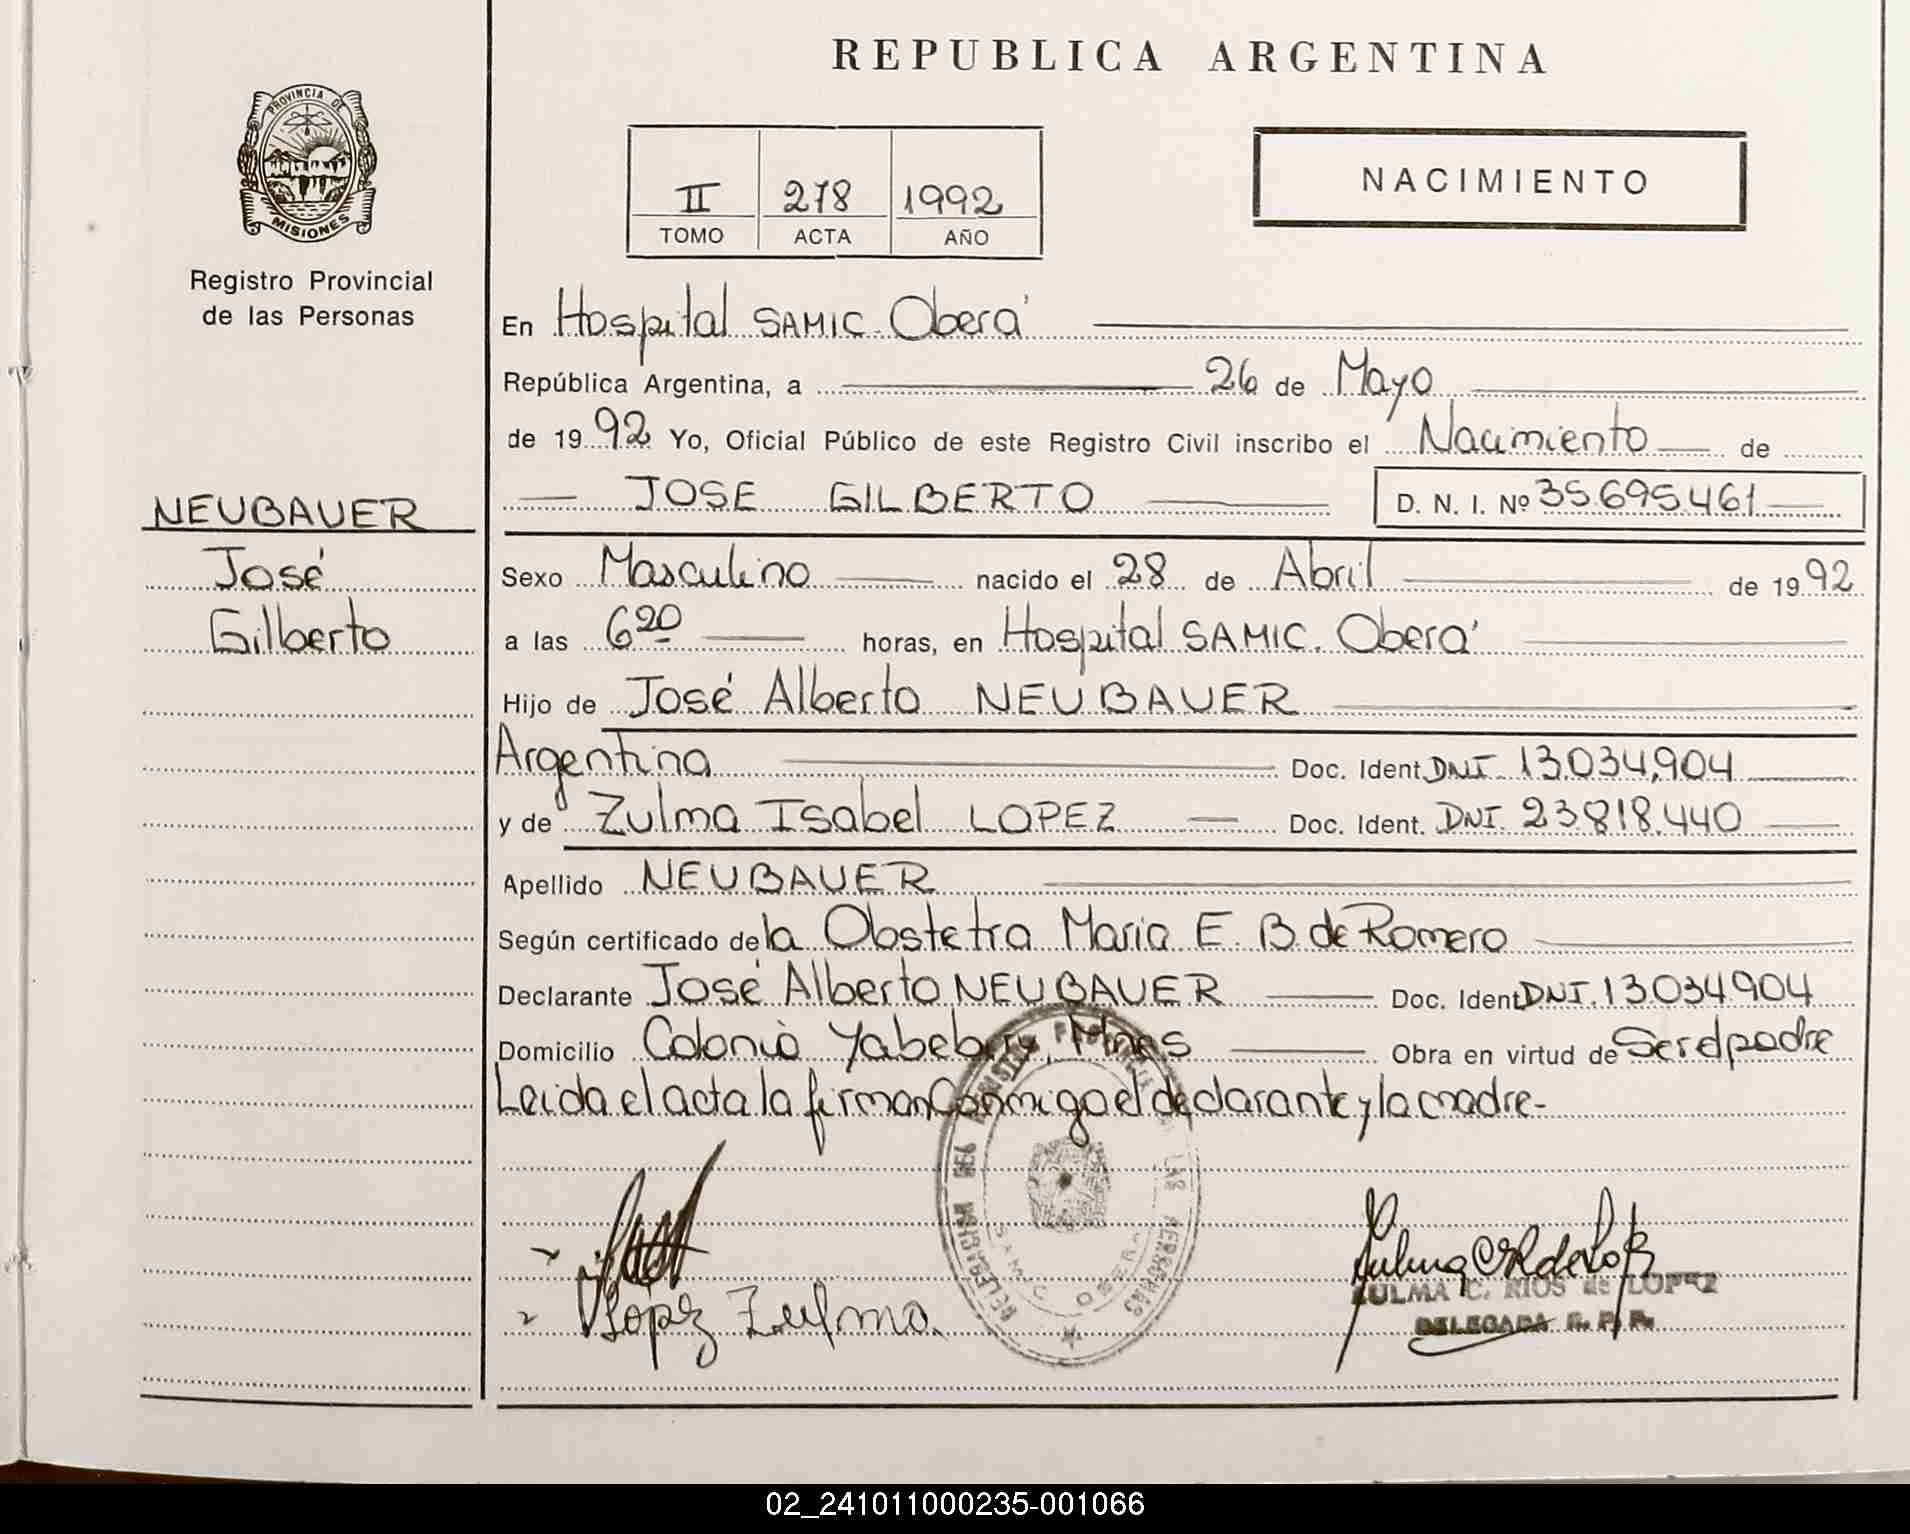 REPUBLICA ARGENTINA
PROVINCIA DE
MISIONES
Registro Provincial
de las Personas
II 278 1992
TOMO ACTA AÑO
NACIMIENTO
En Hospital SAMIC. Oberá
República Argentina, a 26 de Mayo
de 1992 Yo, Oficial Público de este Registro Civil inscribo el Nacimiento de
JOSE GILBERTO D. N. I. Nº 35.695.461
NEUBAUER
José
Gilberto
Sexo Masculino nacido el 28 de Abril de 1992
a las 6 20 horas, en Hospital SAMIC. Oberá
Hijo de José Alberto NEUBAUER
Argentina Doc. Ident DNI. 13.034.904
y de Zulma Isabel LOPEZ Doc. Ident. DNI. 23.818.440
Apellido NEUBAUER
Según certificado de la Obstetra Maria E. B. de Romero
Declarante José Alberto NEUBAUER Doc. Ident DNI. 13.034.904
Domicilio Colonia Yabebiry, Mnes Obra en virtud de Ser el padre
Leida el acta la firman Conmigo el declarante y la madre.-
DELEGACION DEL REGISTRO PROVINCIAL DE LAS PERSONAS
SAMIC OBERA
Lopez Zulma.
ZULMA C. RIOS de LOPEZ
DELEGADA R. P. P.
02_241011000235-001066